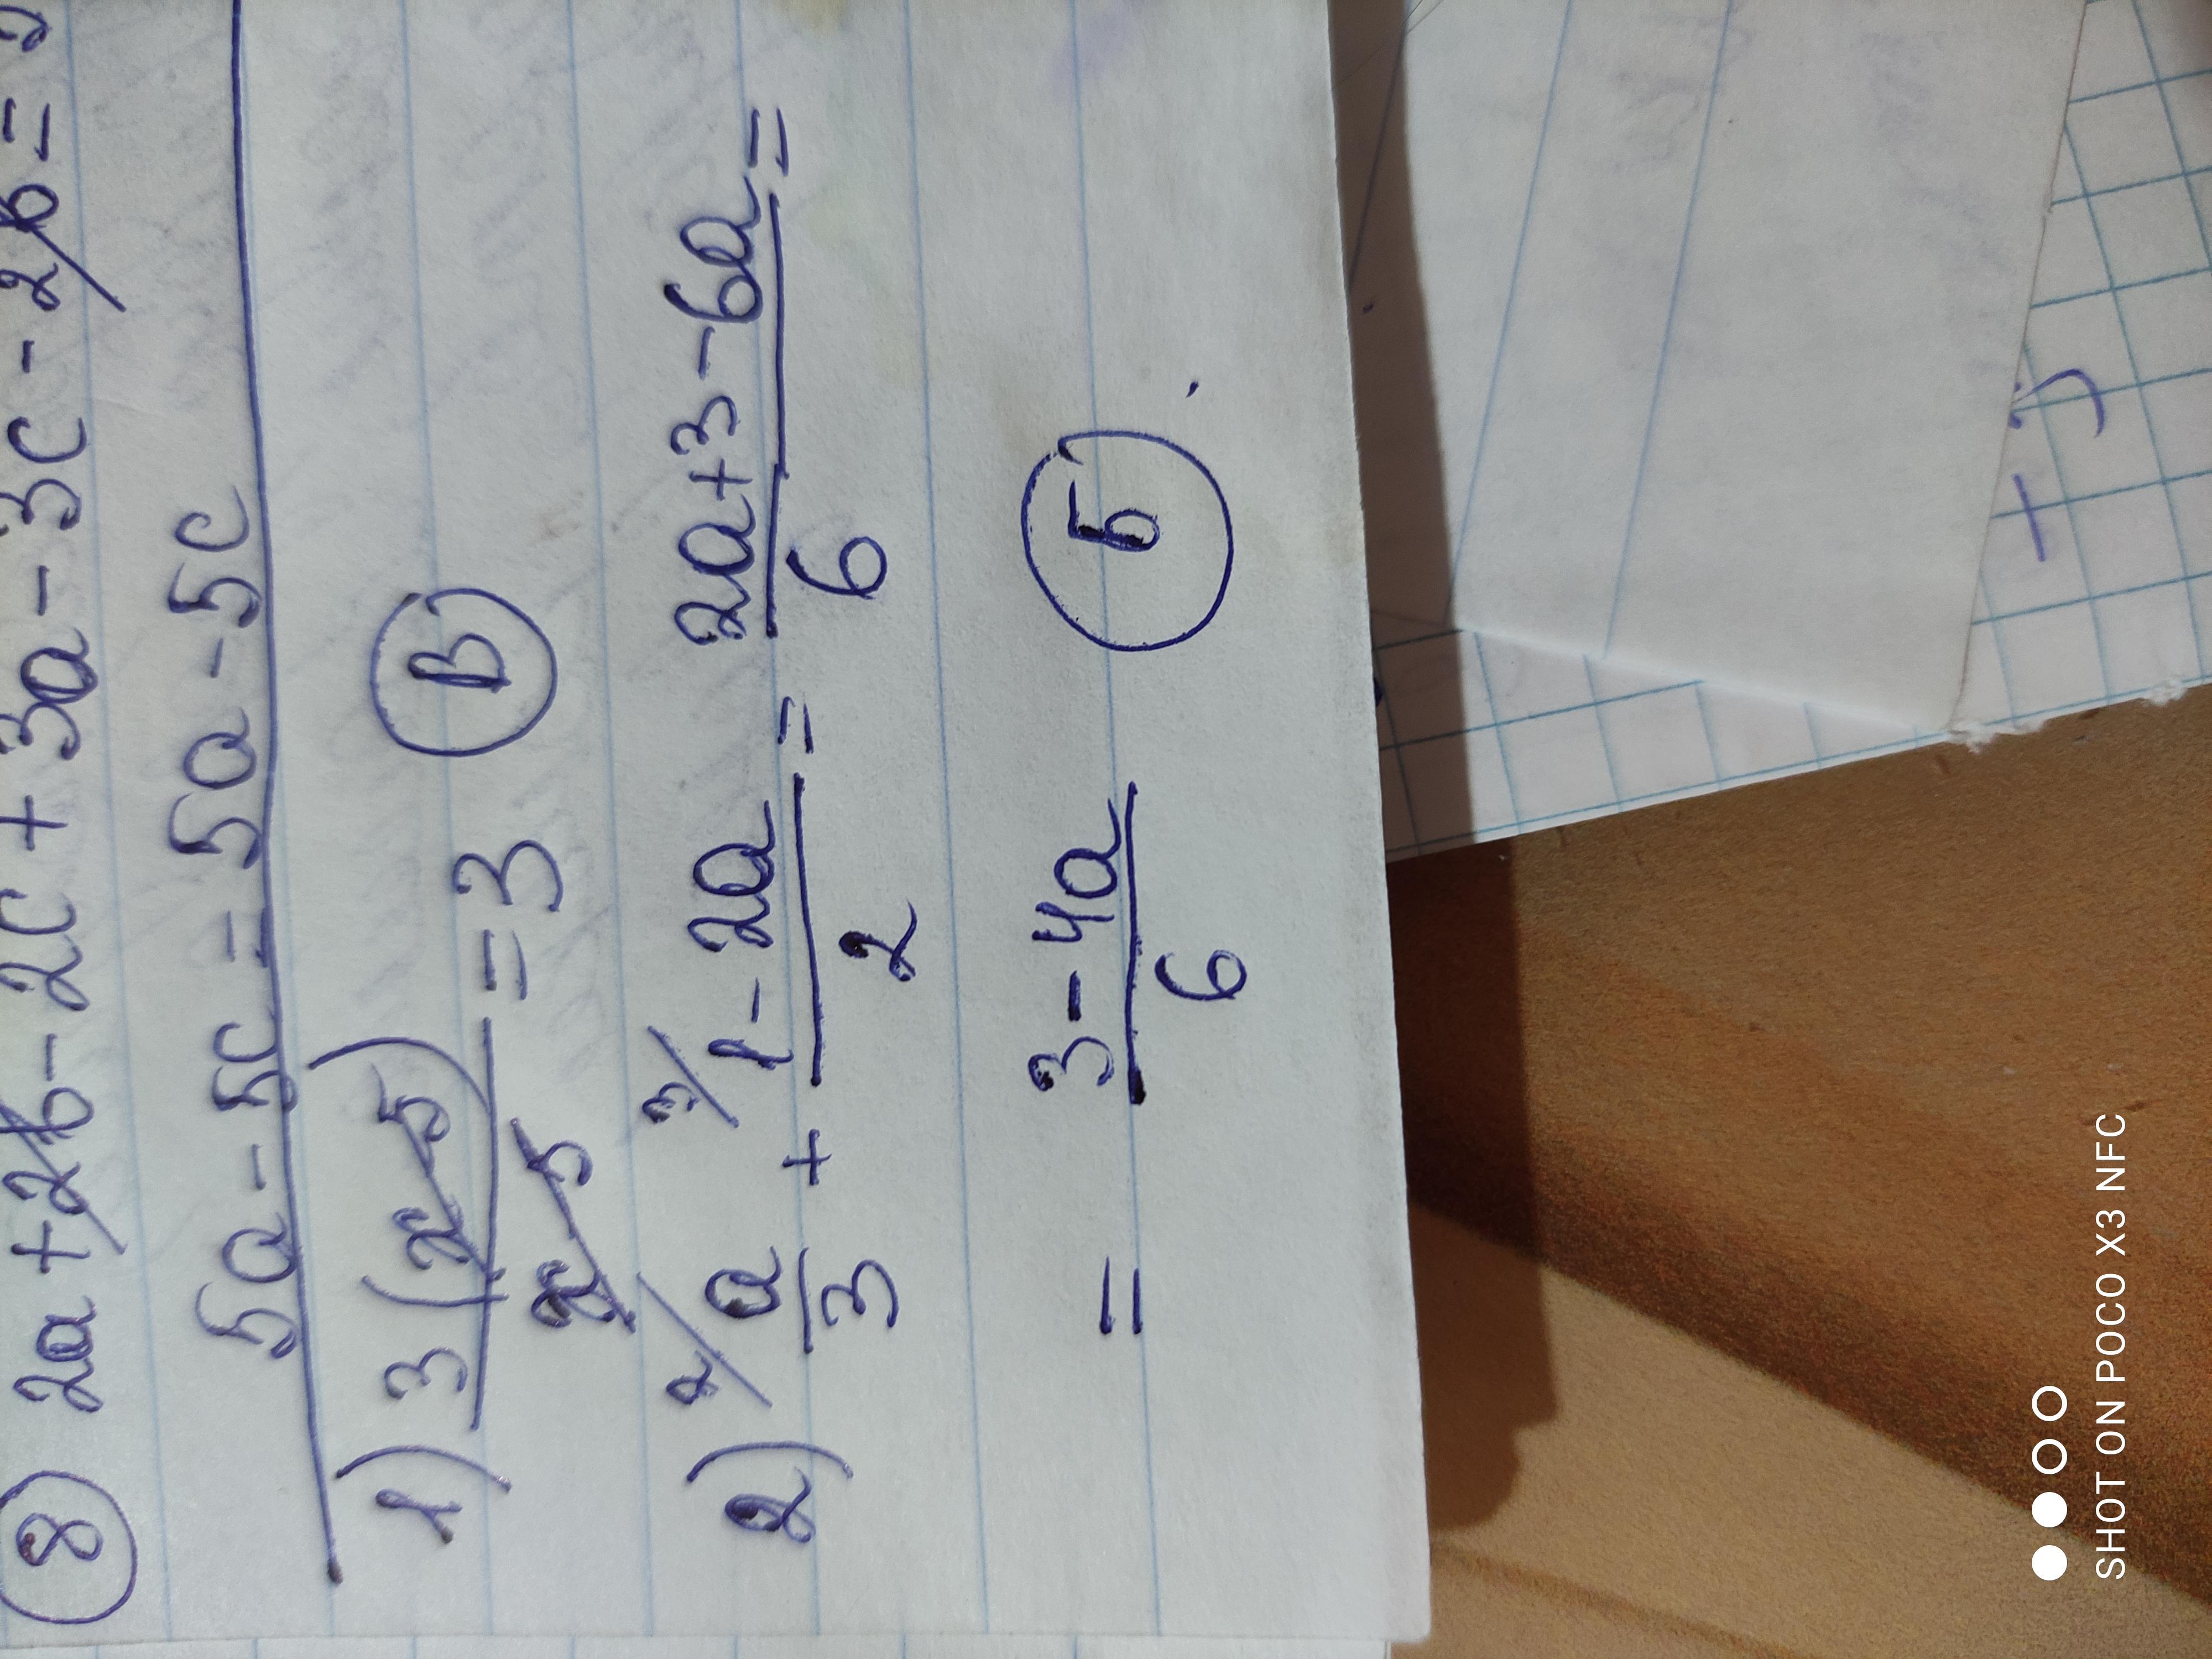 ⑧ 2a + 2b - 2c + 3a - 3c - 2b = 5
5a - 5c = 5a - 5c
1) 3(x-5)/x-5 = 3 Ⓑ
2) 2/ a/3 + 3/ 1-2a/2 = 2a+3-6a/6 =
= 3-4a/6 Ⓑ
SHOT ON POCO X3 NFC